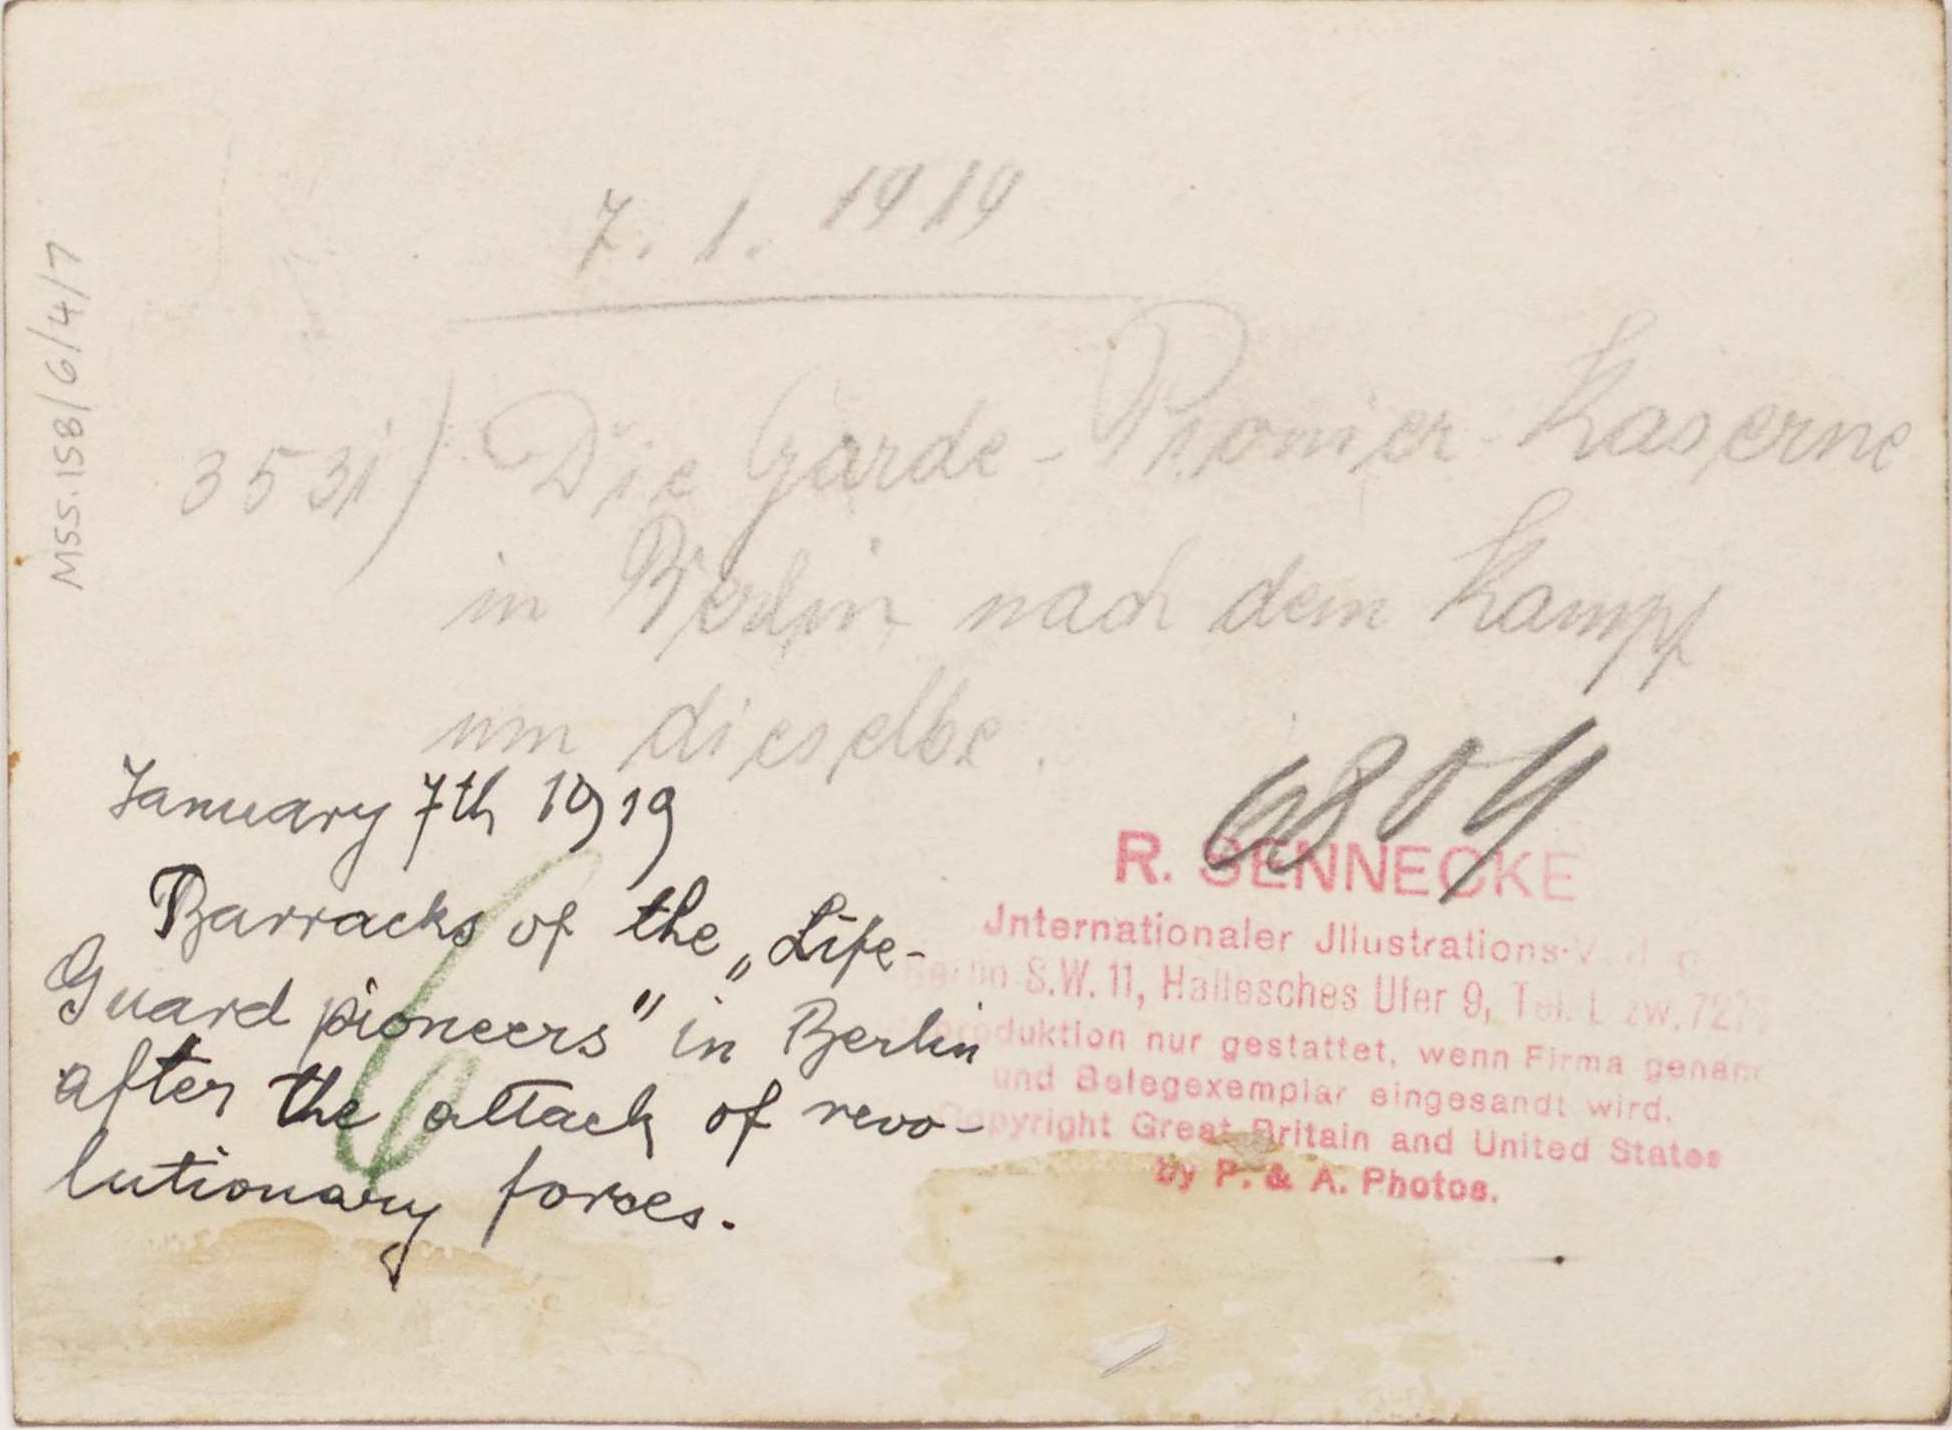 MSS.158/6/4/7
7. 1. 1919
3531) Die Garde-Pionier-Kaserne
in Berlin nach dem Kampf
um dieselbe.
6804
January 7th 1919
Barracks of the „Life-
Guard pioneers" in Berlin
after the attack of revo-
lutionary forces.
6
R. SENNECKE
Jnternationaler Jllustrations-
Berlin S.W. 11, Hallesches Ufer 9, Tel.
nur gestattet, wenn Firma
und Belegexemplar eingesandt wird.
Copyright Great Britain and United States
by P. & A. Photos.